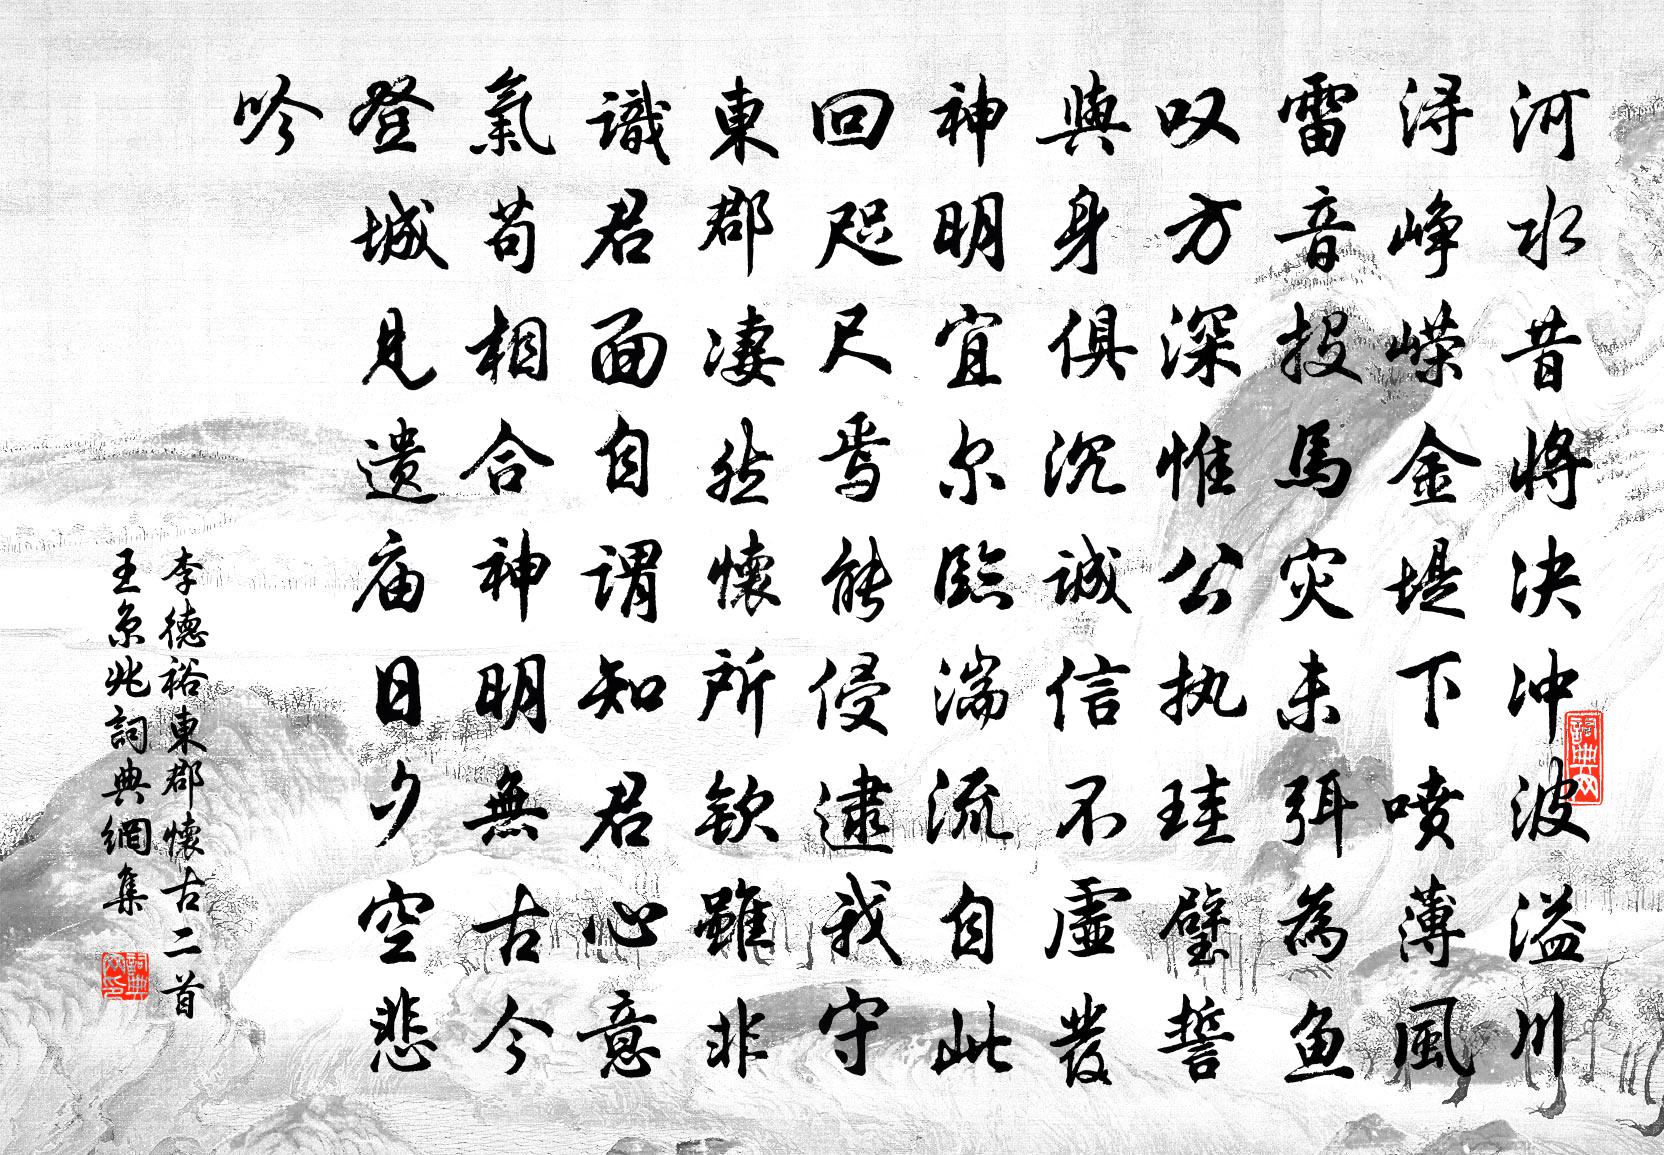 河水昔将决冲波溢川
浔峥嵘金堤下喷薄風
雷音投馬灾未弭為鱼
叹方深惟公执珪璧誓
與身俱沉誠信不虚發
神明宜尔臨湍流自此
回咫尺焉能侵逮我守
東郡凄然懷所欽雖非
識君面自謂知君心意
氣苟相合神明無古今
登城見遗庙日夕空悲
吟
李德裕東郡懷古二首
王京兆詞典網集
詞典网
詞典网印